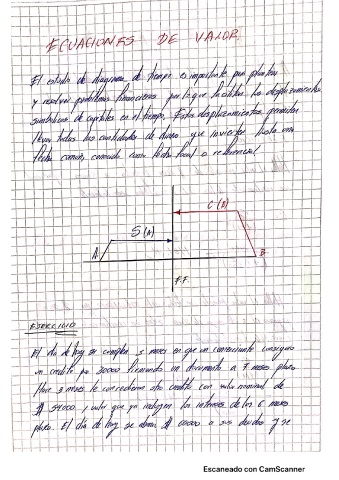 ECUACIONES DE VALOR
El estudio de diagramas de tiempo es importante para plantear
y resolver problemas financieros porque facilitan los desplazamientos
simbólicos de capitales en el tiempo, Estos desplazamientos permiten
llevar todas las cantidades de dinero que invierten hasta una
fecha común, conocida como fecha focal o referencial
C (A)
S (A)
A
B
F.F.
EJERCICIO
El día de hoy se cumplen 3 meses en que un comerciante consiguio
un credito por 30000 firmando un documento a 7 meses plazo
Hace 3 meses le concedieron otro credito con valor nominal de
$ 54000, valor que ya incluyen los intereses de los 6 meses
plazo. El día de hoy se abona $ a sus deudas y se
Escaneado con CamScanner